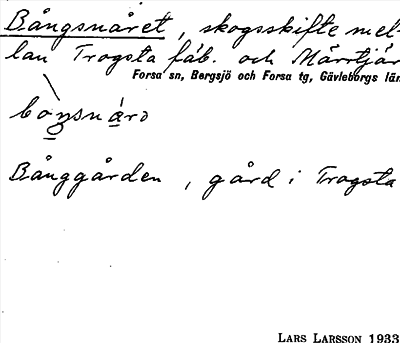 Bångsnåret, skogsskifte mel-
lan Trogsta fäb. och Mårrtjär
Forsa sn, Bergsjö och Forsa tg, Gävleborgs län
Bånggården, gård i Trogsta
LARS LARSSON 1933